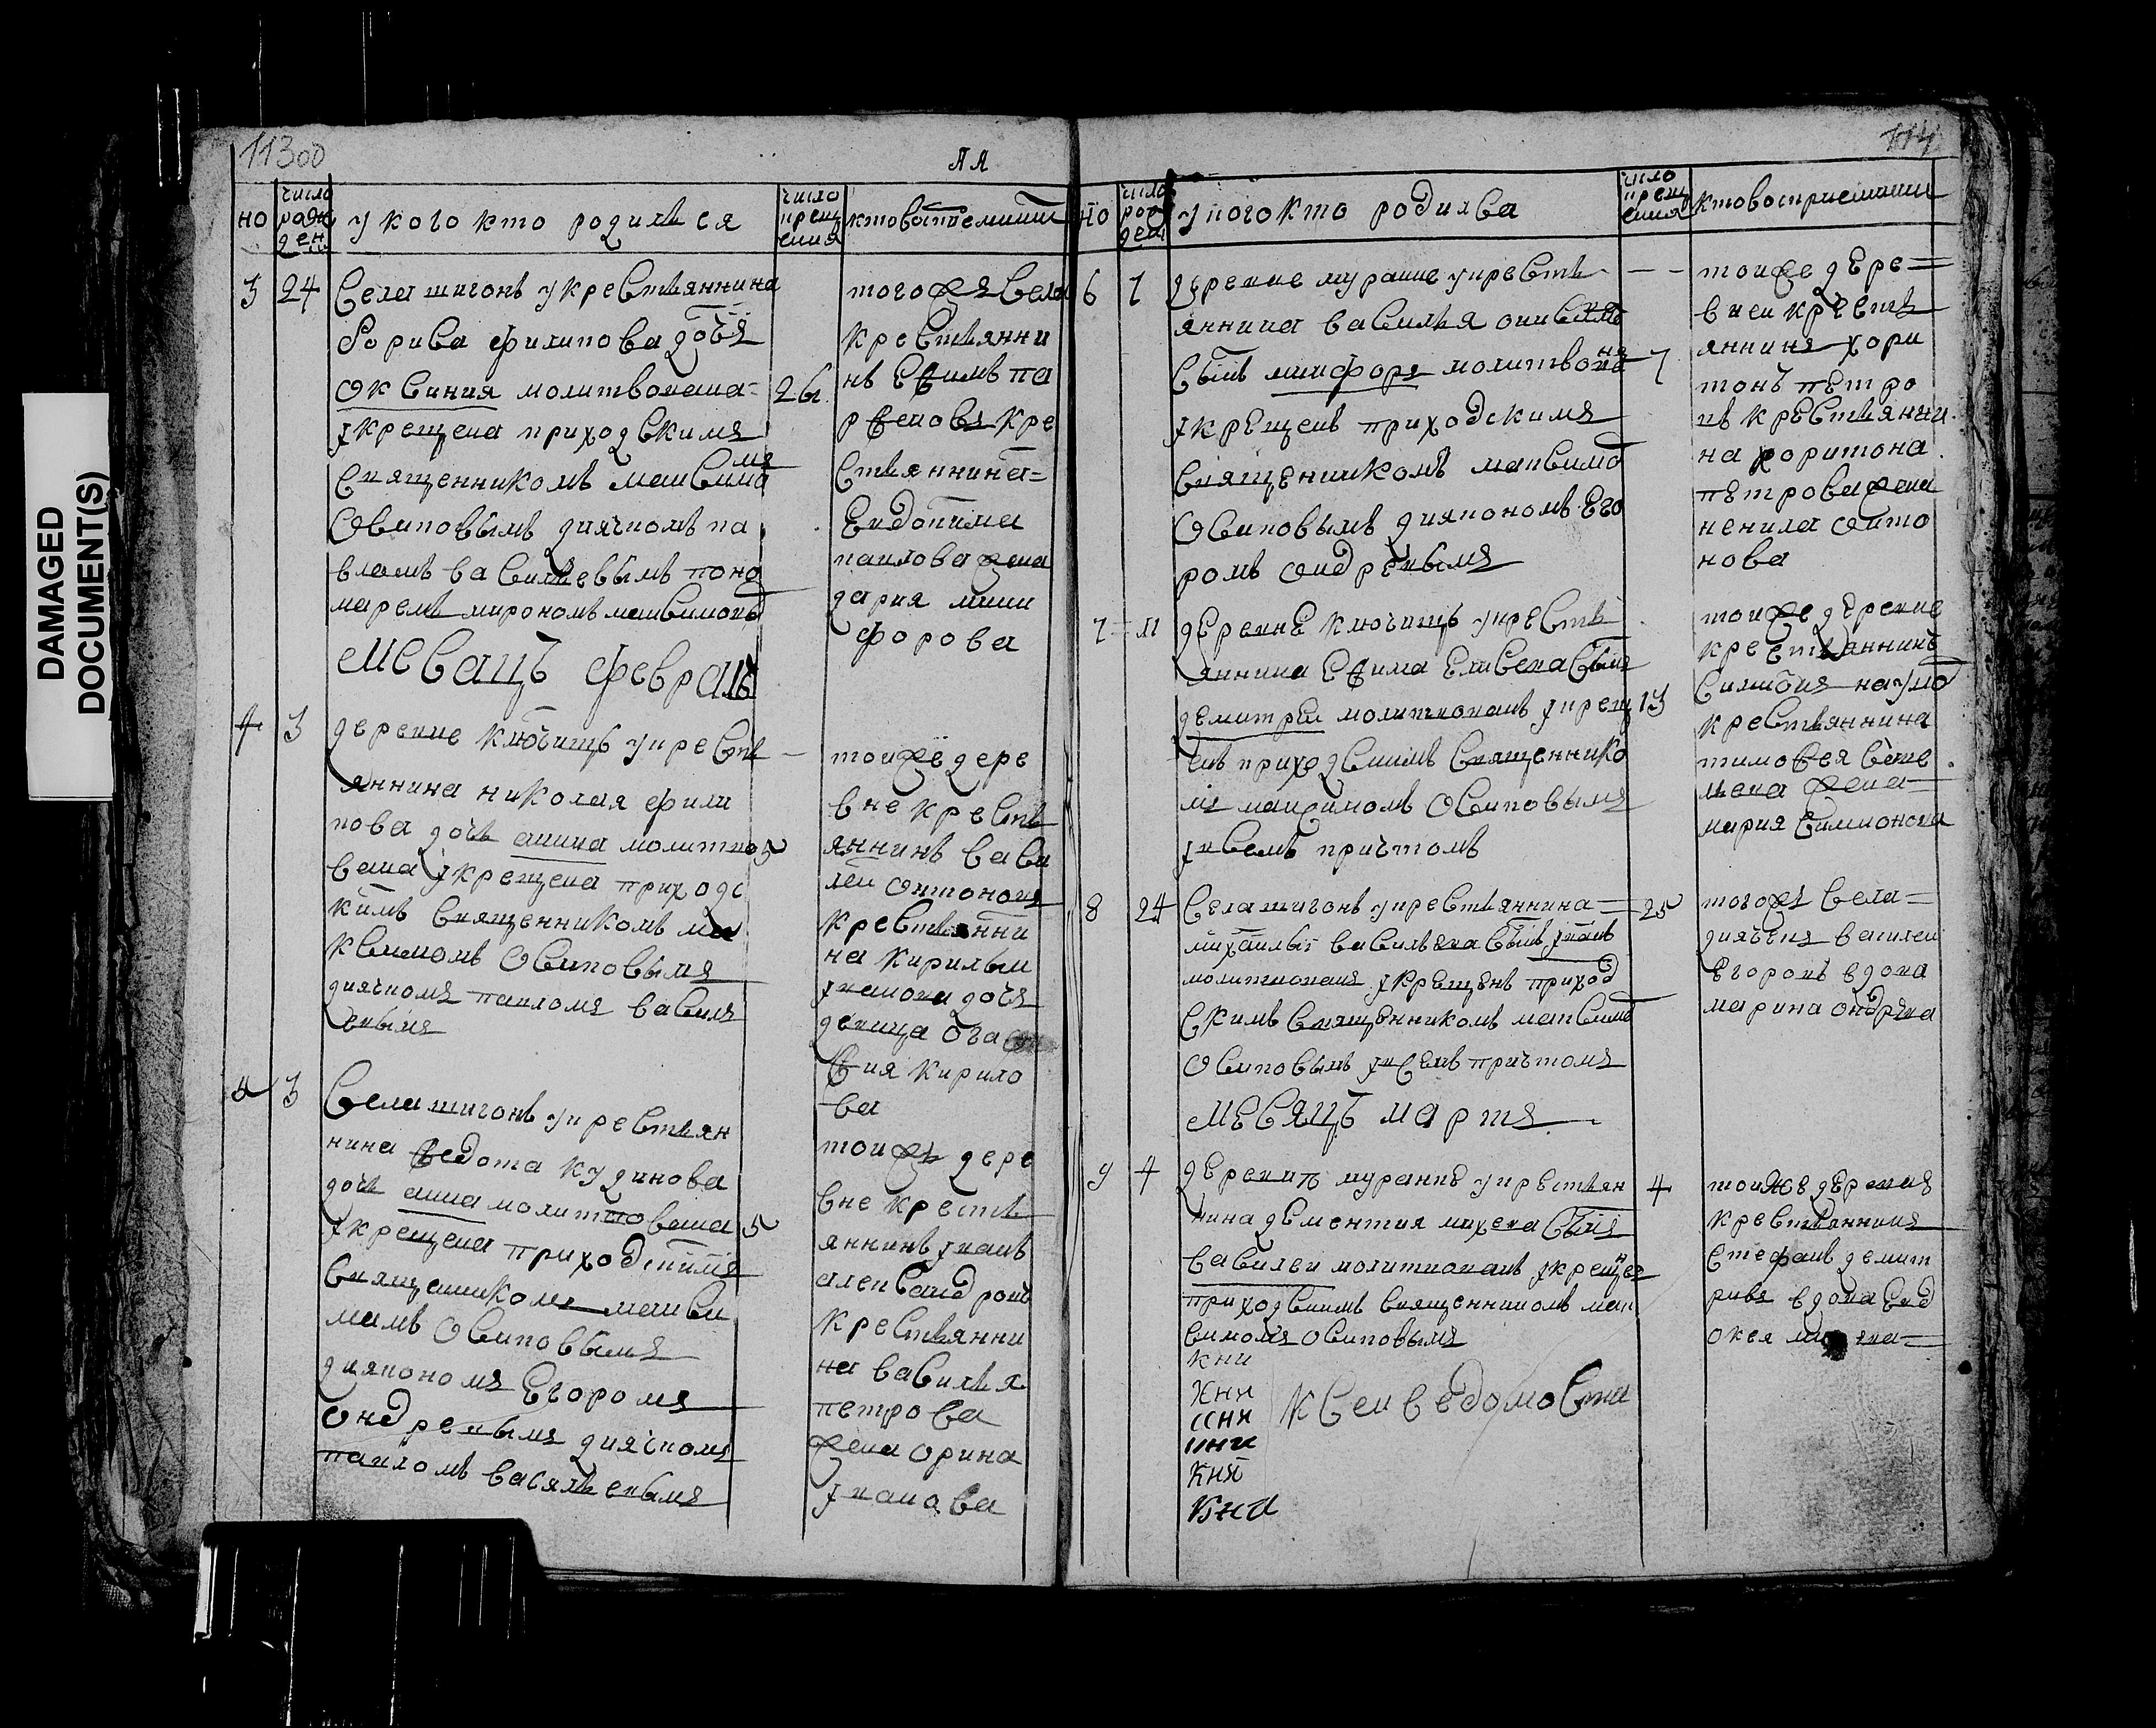 DAMAGED
DOCUMENT(S)
11300
но
число
рож
ден
у кого кто родился
число
крещ
ения
3
24
Села шигонъ у крестьяннина
Бориса филипова дочь
оксиния молитвована
ӏкрещена приходскимъ
26
священникомъ максимо
мъ
осиповымъ диячкомъ па
вломъ васильевымъ поно
маремъ мирономъ
тогожъ села
крестьянни
нъ ефимъ па
крестьяннина
павлова жена
дария ники
форова
месацъ февраль
4
3
деревне ключищъ у кресть
яннина николая фили
пова дочь анна молитво
5
вана ӏкрещена приходс
кимъ священникомъ ма
ксимомъ осиповымъ
диячкомъ павломъ василь
евымъ
тойже дере
вне кресть
яннинъ васи
леи антоновъ
крестьянни
на кирилы
ӏванова дочь
девица
фия кирило
ва
3
Села шигонъ у крестьян
нина федота кудинова
дочь анна молитвована
5
ӏкрещена приходскимъ
священникомъ макси
мамъ осиповымъ
диякономъ егоромъ
ондревымъ диячкомъ
павломъ василевымъ
тойжъ дере
вне кресть
яннинъ ӏванъ
александровъ
крестьянни
на василья
петрова
жена орина
ӏванова
114
но
число
рож
ден
у кого кто родился
число
крещ
ения
кто восприемники
6
7
деревне муране у кресть
яннина василья
сынъ никифоръ молитвова
нъ
7
ӏкрещенъ приходскимъ
священникомъ максимо
осиповымъ диякономъ его
ромъ ондревымъ
тойже дере
внеи кресть
яннинъ хари
тонъ петро
въ крестьянни
на харитона
петрова жена
ненила онто
нова
7
11
деревне ключищъ у кресть
яннина ефима елисеева сынъ
демитреи молитвованъ ӏкрещ
13
енъ приходскимъ священнико
мъ максимомъ осиповымъ
ӏвсемъ причтомъ
тойже деревне
крестьяннинъ
наумо
крестьяннина
тимофея
жена
мария симионова
8
24
Села шигонъ у крестьяннина
25
михаилы васильева сынъ ӏванъ
молитвованъ ӏкрещенъ приход
скимъ священникомъ максимо
осиповымъ ӏвсемъ причтомъ
тогожъ села
диячекъ василеи
егоровъ вдова
марина ондрева
месяцъ мартъ
9
4
деревнъ муране у крестьян
4
нина дементия михеева сынъ
василеи молитвованъ ӏкрещен
приходскимъ священникомъ мак
симомъ осиповымъ
тойже деревнъ
крестьяннинъ
стефанъ демит
ривъ вдова евд
окея
кни
кни
кни
кни
кни
к сеи ведомости